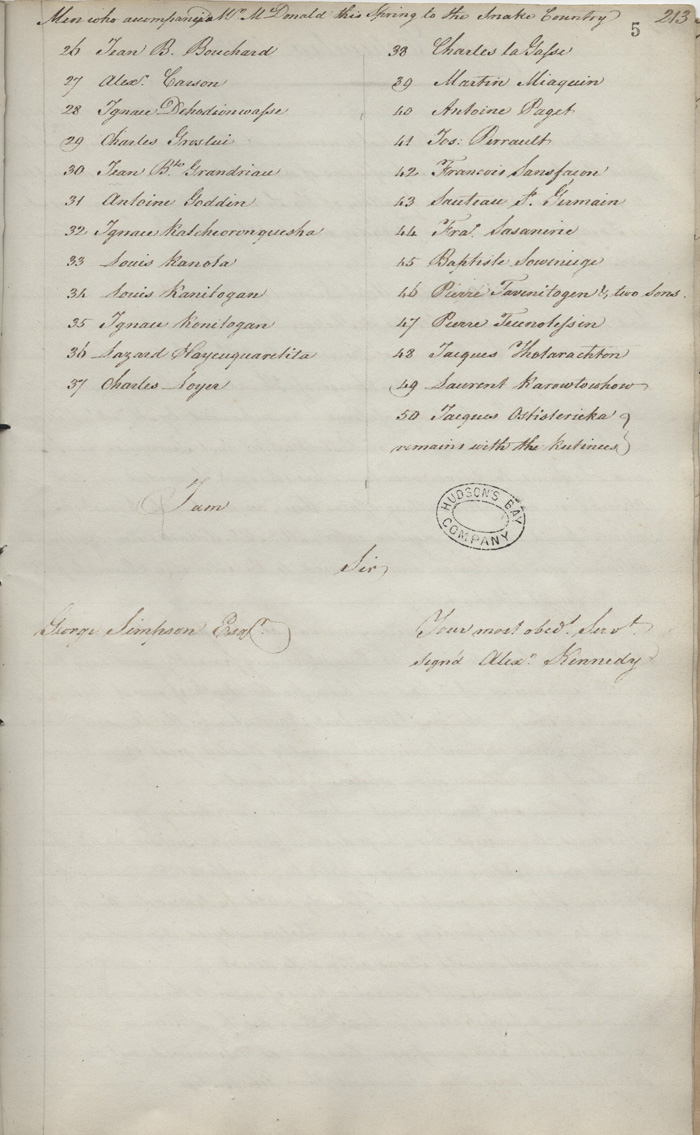 Men who accompany'd Mr McDonald this Spring to the Snake Country
5
213
26 Jean B. Bouchard
27 Alexr. Carson
28 Ignace Dehodionwasse
29 Charles Groslui
30 Jean Bte Grandriau
31 Antoine Goddin
32 Ignace Kalcheoronquesha
33 Louis Kanota
34 Louis Kanitogan
35 Ignace Konitogan
36 Lazard Haycuquarelita
37 Charles Loyer
38 Charles la Gasse
39 Martin Miaquin
40 Antoine Paget
41 Jos: Perrault
42 Francois Sansfacon
43 Sauteau St. Germain
44 Fras. Sasanirie
45 Baptiste Sowenege
46 Pierre Tevenitogen & two Sons
47 Pierre Teenotessen
48 Jacques Thotarachton
49 Laurent Karowtowhow
50 Jacques Ostistericka
remains with the Kutinees
I am
HUDSON'S BAY COMPANY
Sir
George Simpson Esqr.
Your most obedt. Servt.
sign'd Alexr. Kennedy